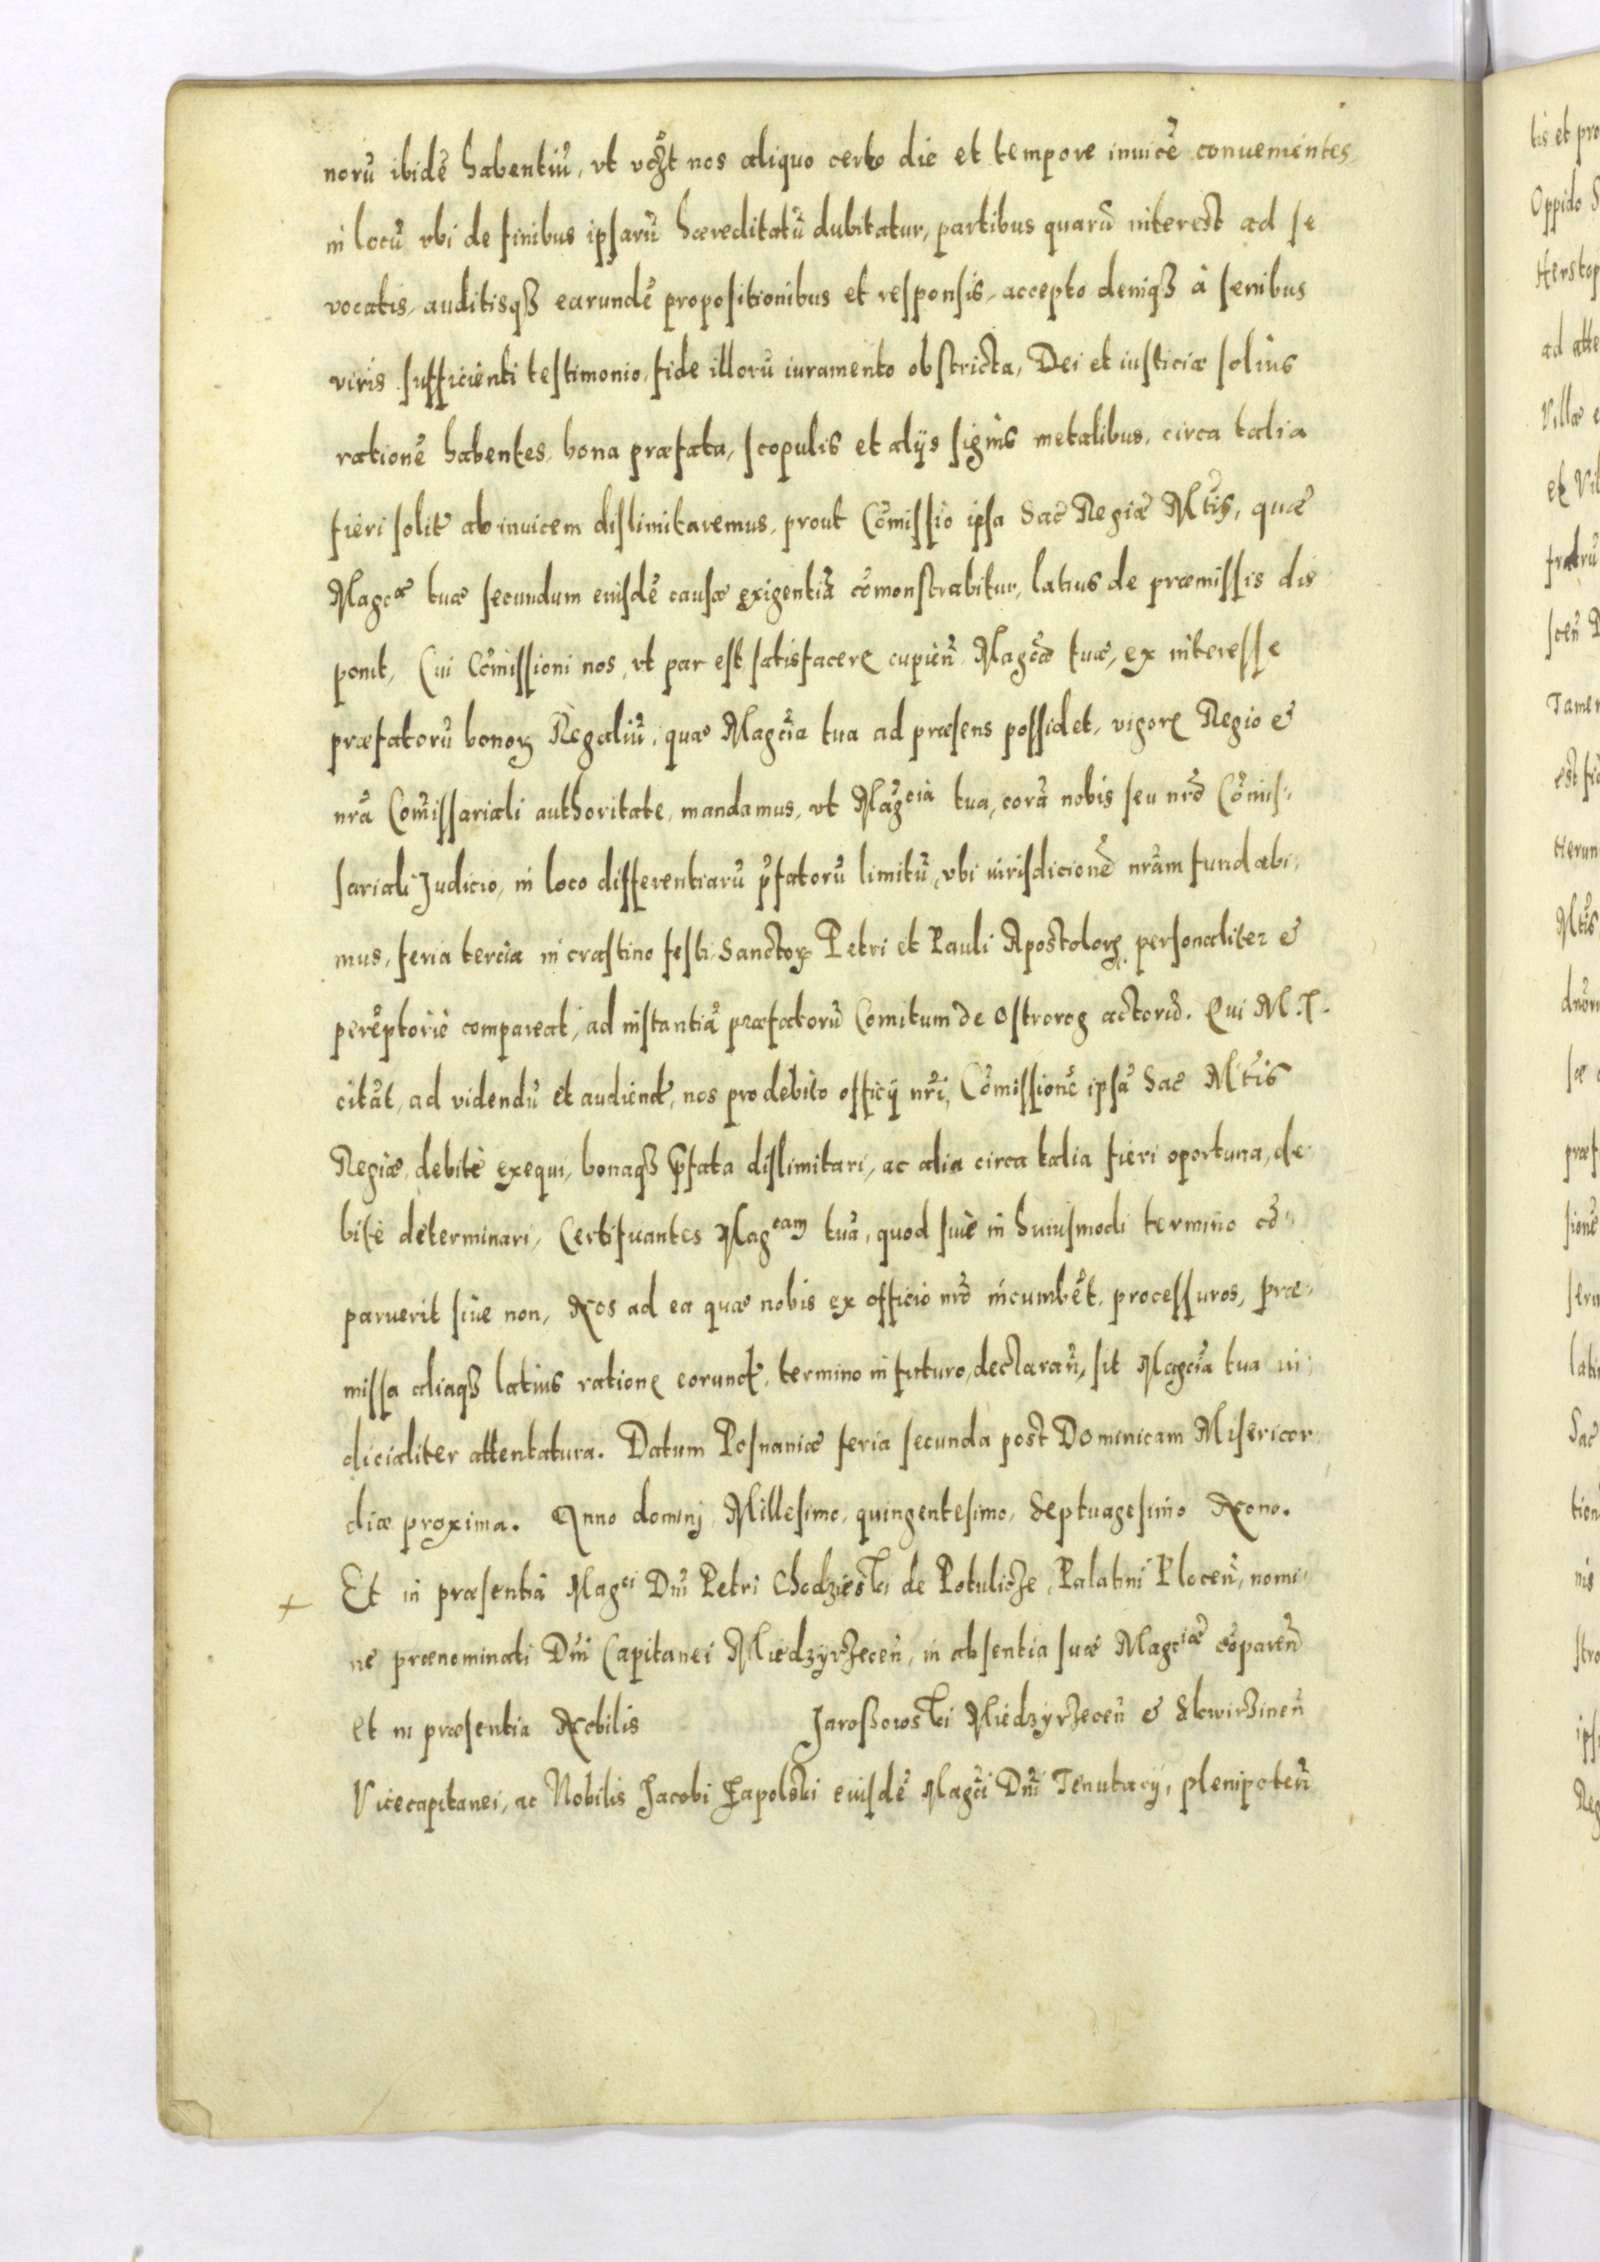 norū ibidē habentiū, vt nos aliquo certo die et tempore inuicē conuenientes
in locū vbi de finibus ipsarū haereditatū dubitatur, partibus quarū interest ad se
vocatis, auditisqȝ earundē propositionibus et responsis, accepto deniqȝ à senibus
viris sufficienti testimonio, fide illorū iuramento obstricta, Dei et iusticiae solius
rationē habentes, bona praefata, scopulis et alijs signis metalibus, circa talia
fieri solit̄ ab inuicem dislimitaremus, prout Cōmissio ipsa Sac̄ Regiae Mt̄is, quae
Magcae tuae secundum eiusdē causae exigentiā cōmonstrabitur, latius de praemissis dis
ponit, Cui Cōmissioni nos, vt par est satisfacere cupien̄ Magc̄ae tuae, ex interesse
praefatorū bonoꝝ Regaliū, quae Magc̄ia tua ad praesens possidet, vigore Regio &
nrā Com̄issariali authoritate, mandamus, vt Magcia tua, corā nobis seu nrō Cōmis:
sariali Judicio, in loco differentiarū p̄fatorū limitū, vbi iurisdicionē nrām fundabi:
mus, feria tercia in crastino festi Sanctoꝝ Petri et Pauli Apostoloꝝ personaliter &
perēptoriè compareat, ad instantiā praefatorū Comitum de Ostrorog actorū. Qui M. T.
citāt, ad videndū et audiend̄, nos pro debito officij nrī, Cōmissionē ipsā Sac̄ Mt̄is
Regiae, debitè exequi, bonaqȝ p̄fata dislimitari, ac alia circa talia fieri oportuna, de:
bitè determinari, Certificantes Magcam tuā, quod siue in huiusmodi termino cō:
paruerit siue non, Nos ad ea quae nobis ex officio nrō incumbēt, processuros, prae:
missa aliaqȝ latius ratione eorund̄, termino in futuro, declaran̄, sit Magc̄ia tua iu:
dicialiter attentatura. Datum Posnaniae feria secunda post Dominicam Misericor
diae proxima. Anno dominj Millesimo, quingentesimo, Septuagesimo Nono.
Et in praesentia Magci Dn̄i Petri Chodzieski de Potulicze, Palatini Plocen̄, nomi:
ne praenominati Dn̄i Capitanei Miedzyrzecen̄, in absentia suae Magciae cōparen̄
et in praesentia Nobilis Jaroszowski Miedzyrzecen̄ & Skwirzinen̄
Vicecapitanei, ac Nobilis Jacobi Zapolski eiusdē Magc̄i Dn̄i Tenutarij, plenipoten̄